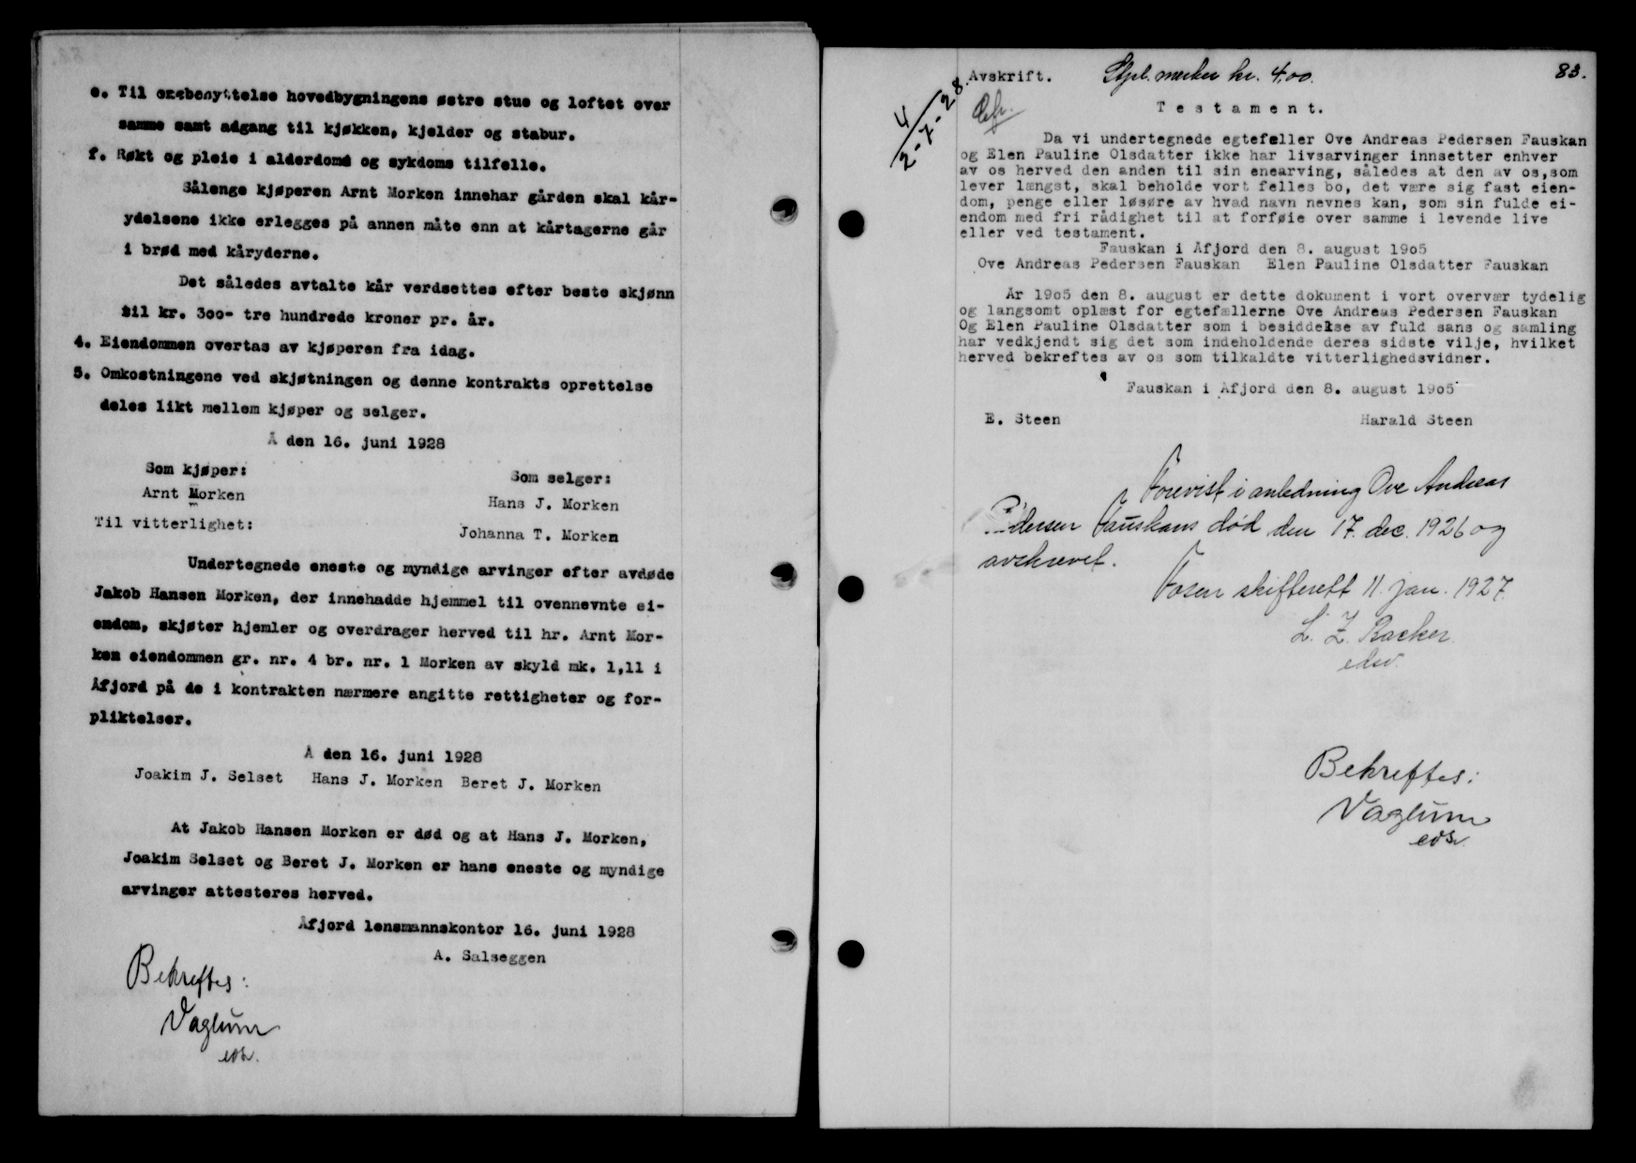 e. Til enebenyttelse hovedbygningens østre stue og loftet over
samme samt adgang til kjøkken, kjelder og stabur.
f. Røkt og pleie i alderdoms og sykdoms tilfelle.
Sålenge kjøperen Arnt Morken innehar gården skal kår-
ydelsene ikke erlegges på annen måte enn at kårtagerne går
i brød med kåryderne.
Det således avtalte kår verdsettes efter beste skjønn
til kr. 3oo- tre hundrede kroner pr. år.
4. Eiendommen overtas av kjøperen fra idag.
5. Omkostningene ved skjøtningen og denne kontrakts oprettelse
deles likt mellem kjøper og selger.
Å den 16. juni 1928
Som kjøper: Som selger:
Arnt Morken Hans J. Morken
Til vitterlighet: Johanna T. Morken
Undertegnede eneste og myndige arvinger efter avdøde
Jakob Hansen Morken, der innehadde hjemmel til ovennevnte ei-
endom, skjøter hjemler og overdrager herved til hr. Arnt Mor-
ken eiendommen gr. nr. 4 br. nr. 1 Morken av skyld mk. 1,11 i
Åfjord på de i kontrakten nærmere angitte rettigheter og for-
pliktelser.
Å den 16. juni 1928
Joakim J. Selset Hans J. Morken Beret J. Morken
At Jakob Hansen Morken er død og at Hans J. Morken,
Joakim Selset og Beret J. Morken er hans eneste og myndige
arvinger attesteres herved.
Åfjord lensmannskontor 16. juni 1928
A. Salseggen
Bekreftes:
Vaglum
edsv.
Avskrift. Stpl. merker kr. 4.00. 83.
4
2-7-28.
Testament.
Da vi undertegnede egtefeller Ove Andreas Pedersen Fauskan
og Elen Pauline Olsdatter ikke har livsarvinger innsetter enhver
av os herved den anden til sin enearving, således at den av os,som
lever længst, skal beholde vort felles bo, det være sig fast eien-
dom, penge eller løsøre av hvad navn nevnes kan, som sin fulde ei-
endom med fri rådighet til at forføie over samme i levende live
eller ved testament.
Fauskan i Åfjord den 8. august 19o5
Ove Andreas Pedersen Fauskan Elen Pauline Olsdatter Fauskan
År 19o5 den 8. august er dette dokument i vort overvær tydelig
og langsomt oplæst for egtefællerne Ove Andreas Pedersen Fauskan
Og Elen Pauline Olsdatter som i besiddelse av fuld sans og samling
har vedkjendt sig det som indeholdende deres sidste vilje, hvilket
herved bekreftes av os som tilkaldte vitterlighedsvidner.
Fauskan i Åfjord den 8. august 19o5
E. Steen Harald Steen
Forevist i anledning Ove Andreas
Pedersen Fauskans død den 17. dec. 1926 og
avskrevet.
Fosen skifterett 11. jan. 1927.
L. Z. Backer.
edsv.
Bekreftes:
Vaglum
edsv.